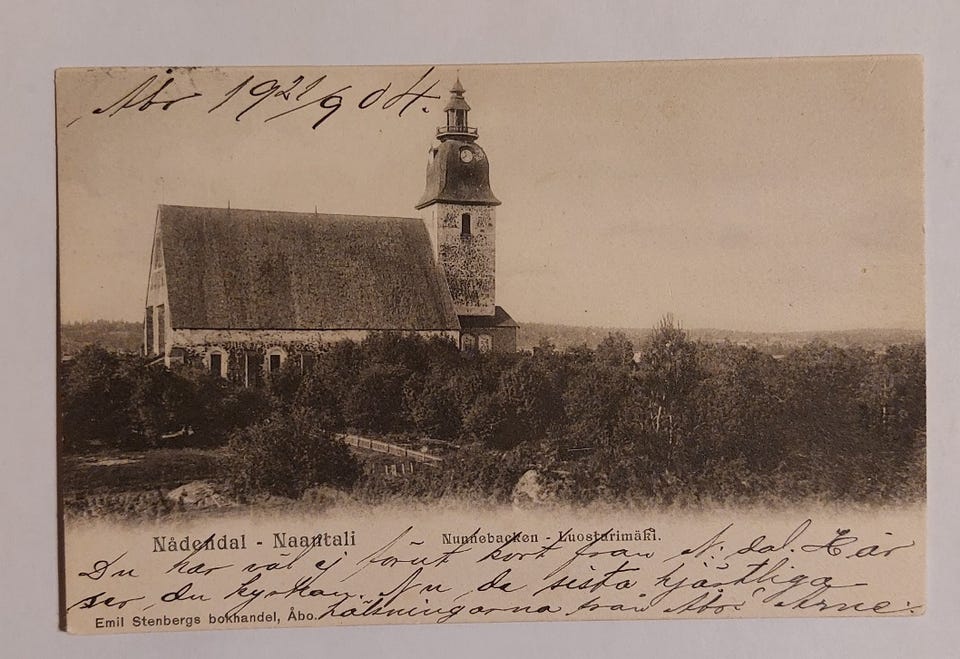 Åbo 19 21/9 04.
Nådendal - Naantali
Nunnebacken - Luostarimäki.
Du har väl ej förut kort från N:dal. Här
ser du kyrkan. Nu, de sista hjärtliga
hälsningarna från Åbo. Arne.
Emil Stenbergs bokhandel, Åbo.